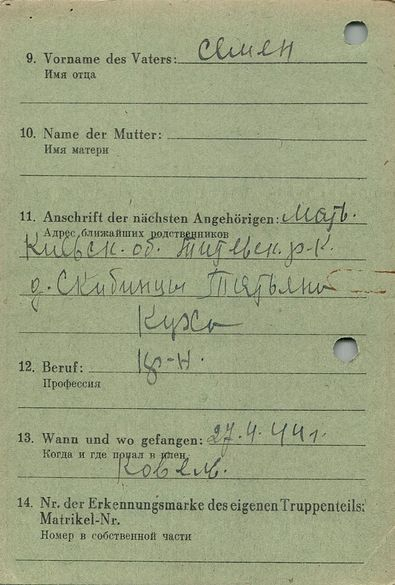 9. Vorname des Vaters: Семен
Имя отца
10. Name der Mutter:
Имя матери
11. Anschrift der nächsten Angehörigen: Мать.
Адрес ближайших родственников
Киевск. об. Титевск. р-к.
д. Скибинцы Татьяна
Кухо
12. Beruf: кр-н.
Профессия
13. Wann und wo gefangen: 27.4.44 г.
Когда и где попал в плен
Ковель.
14. Nr. der Erkennungsmarke des eigenen Truppenteils:
Matrikel-Nr.
Номер в собственной части